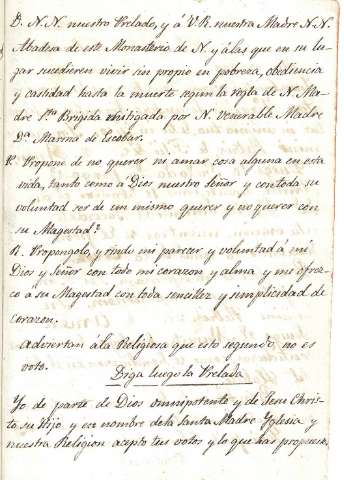 D. N. N. nuestro Prelado, y á V.R. nuestra Madre N.N.
Abadesa de este Monasterio de N. y á las que en su lu-
gar sucedieren vivir sin propio en pobreza, obediencia
y castidad hasta la muerte segun la regla de N. Ma-
dre Sta. Brigida mitigada por N. Venerable Madre
Da. Marina de Escobar.
P. Propone de no querer ni amar cosa alguna en esta
vida, tanto como á Dios nuestro Señor y con toda su
voluntad ser de un mismo querer y no querer con
su Magestad?
R. Propongolo, y rindo mi parecer y voluntad á mi
Dios y Señor con todo mi corazon y alma y me ofrez-
co a su Magestad con toda sencillez y simplicidad de
corazon.
Adviertan á la Religiosa que esto segundo, no es
voto.
Diga luego la Prelada
Yo de parte de Dios omnipotente y de Jesu Chris-
to su Hijo y en nombre de la Santa Madre Yglesia y
nuestra Religion acepto tus votos y lo que has propuesto,